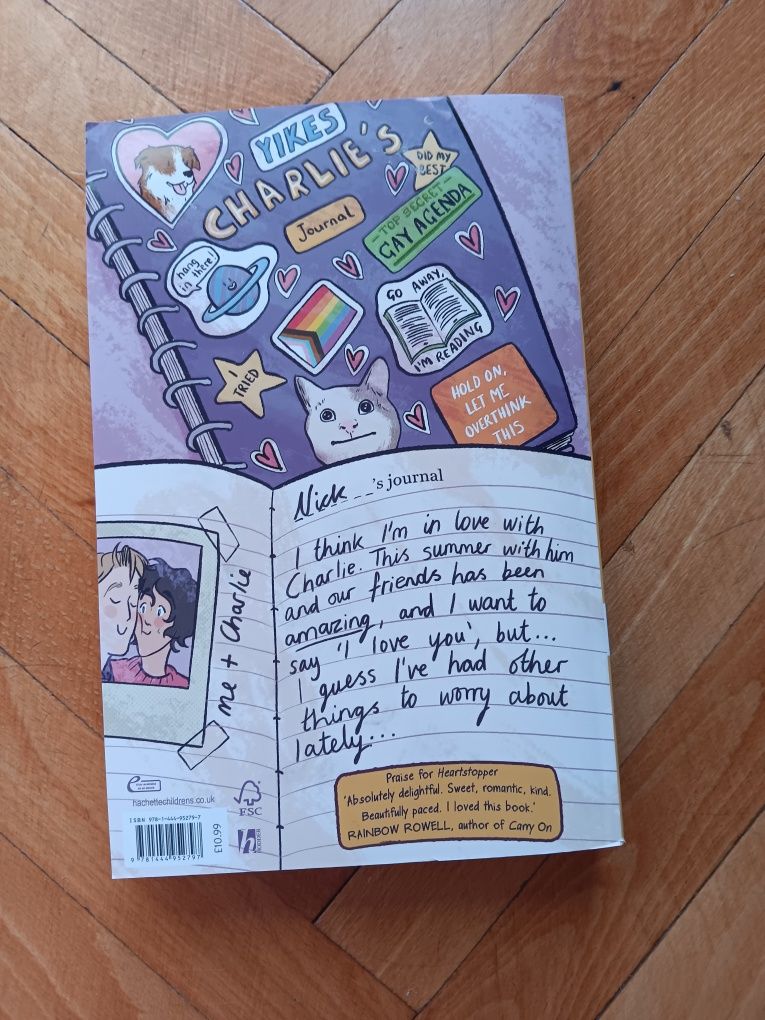 YIKES
CHARLIE'S
Journal
DID MY
BEST
TOP SECRET
GAY AGENDA
hang
in there!
GO AWAY,
I'M READING
I
TRIED
HOLD ON,
LET ME
OVERTHINK
THIS
Nick's journal
I think I'm in love with
Charlie. This summer with him
and our friends has been
amazing, and I want to
say 'I love you', but...
I guess I've had other
things to worry about
lately...
me + Charlie
Praise for Heartstopper
'Absolutely delightful. Sweet, romantic, kind.
Beautifully paced. I loved this book.'
RAINBOW ROWELL, author of Carry On
hachettechildrens.co.uk
FSC
ISBN 978-1-444-95279-7
9 781444 952797
£10.99
h